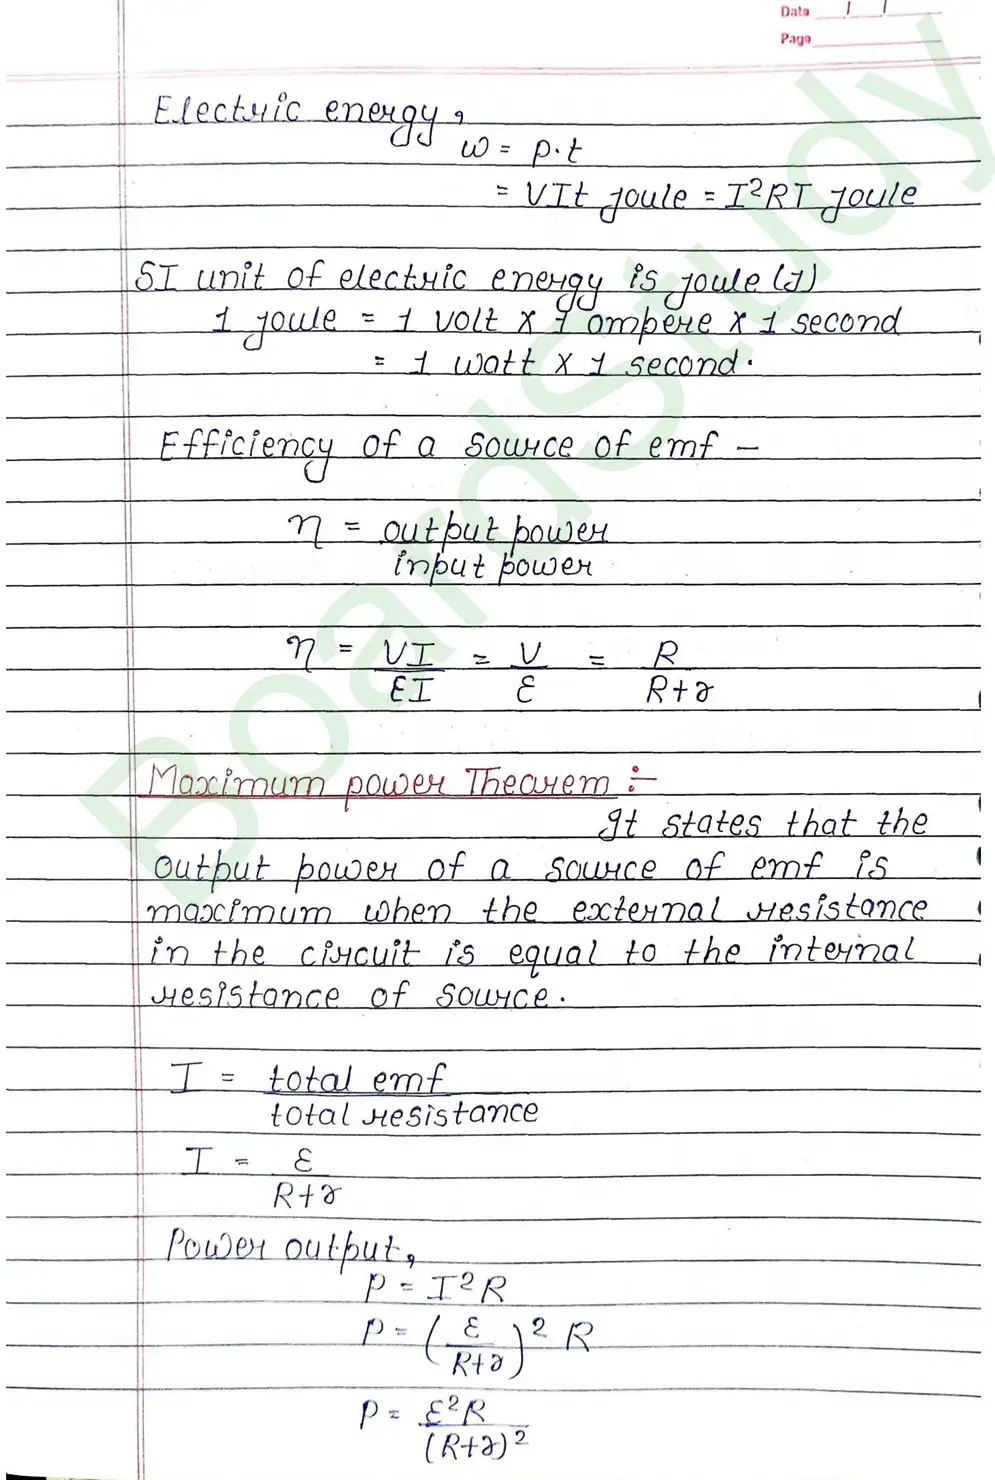 Date / /
Page
Electric energy,
W = P.t
= VIt joule = I²RT joule
SI unit of electric energy is joule (J)
1 joule = 1 volt x 1 ampere x 1 second
= 1 watt x 1 second.
Efficiency of a source of emf –
η = output power
input power
η = VI = V = R
EI ε R+r
Maximum power Theorem :-
It states that the
output power of a source of emf is
maximum when the external resistance
in the circuit is equal to the internal
resistance of source.
I = total emf
total resistance
I = ε
R+r
Power output,
P = I²R
P = (ε/R+r)² R
P = ε²R
(R+r)²
BoardStudy